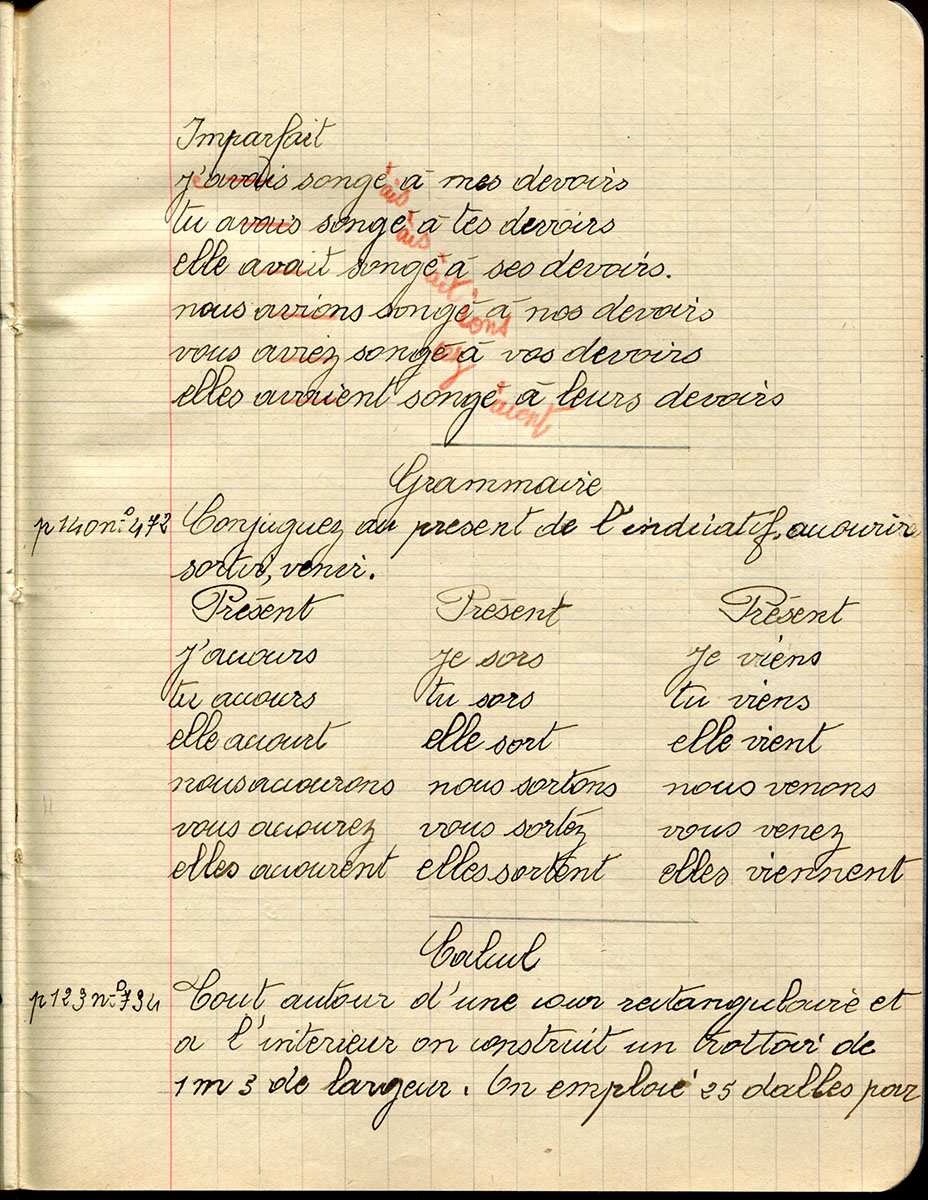 Imparfait
j'avais songé à mes devoirs
ais
tu avais songé à tes devoirs
ais
elle avait songé à ses devoirs.
ait
nous avions songé à nos devoirs
ions
vous aviez songé à vos devoirs
iez
elles avaient songé à leurs devoirs
aient
Grammaire
p 140 nº 472 Conjuguez au présent de l'indicatif, accourir
sortir, venir.
Présent Présent Présent
j'accours je sors je viens
tu accours tu sors tu viens
elle accourt elle sort elle vient
nous accourons nous sortons nous venons
vous accourez vous sortez vous venez
elles accourent elles sortent elles viennent
Calcul
p 123 nº 734 Tout autour d'une cour rectangulaire et
a l'interieur on construit un trottoir de
1m 3 de largeur. On emploie 25 dalles pour